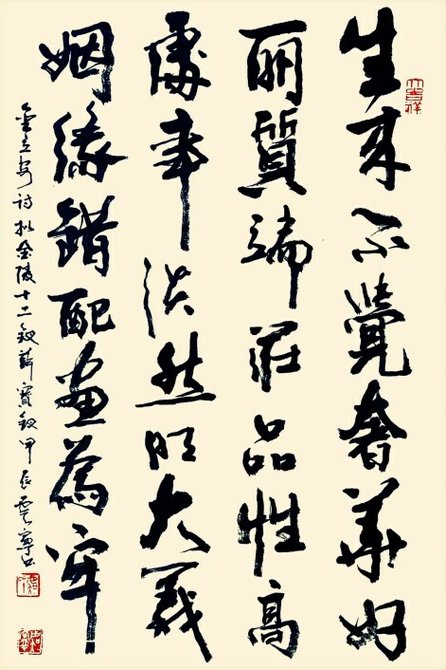 大吉祥
生來不覺奢華好
丽質端莊品性高
處事淡然明大義
姻緣錯配畫為牢
金立安詩 金陵十二釵薛寶釵甲辰雲寧